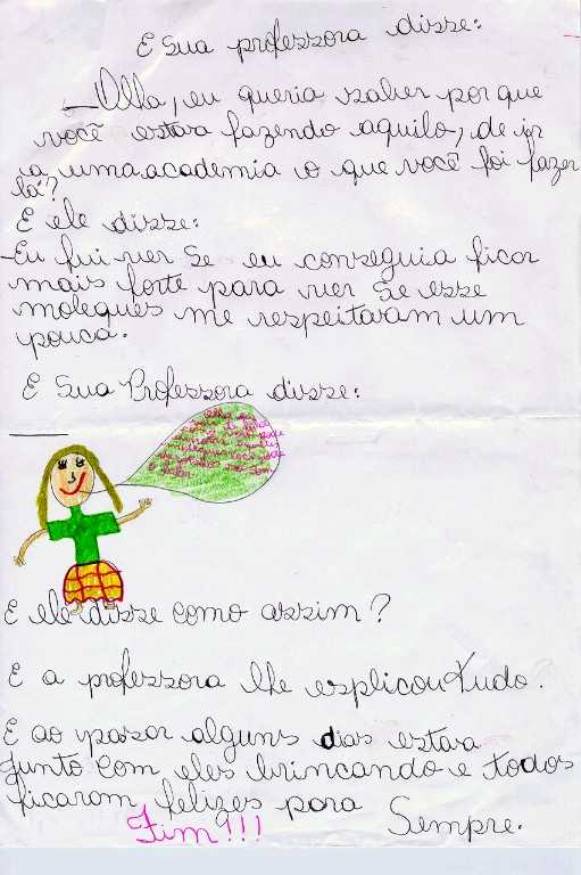 E Sua professora disse:
—Olha, eu queria saber por que
você estava fazendo aquilo, de ir
a uma academia e o que você foi fazer
lá?
E ele disse:
-Eu fui ver Se eu conseguia ficar
mais forte para ver Se esse
moleques me respeitavam um
pouca.
E Sua Professora disse:
E ele disse como assim?
E a professora lhe esplicou tudo.
E ao passar alguns dias estava
junto com eles brincando e todos
ficaram felizes para Sempre.
Fim!!!